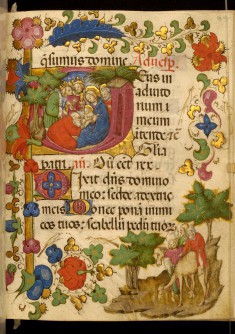 q̃sumus domine Ad uesp.
Deus in
adiuto
rium m
meum
intende etc̃
Glia
patri an. Dũ eēt rex
Dixit dñs domino
meo: sede a dextris
meis Donec ponã inimi
cos tuos: scabellũ pedũ tuor